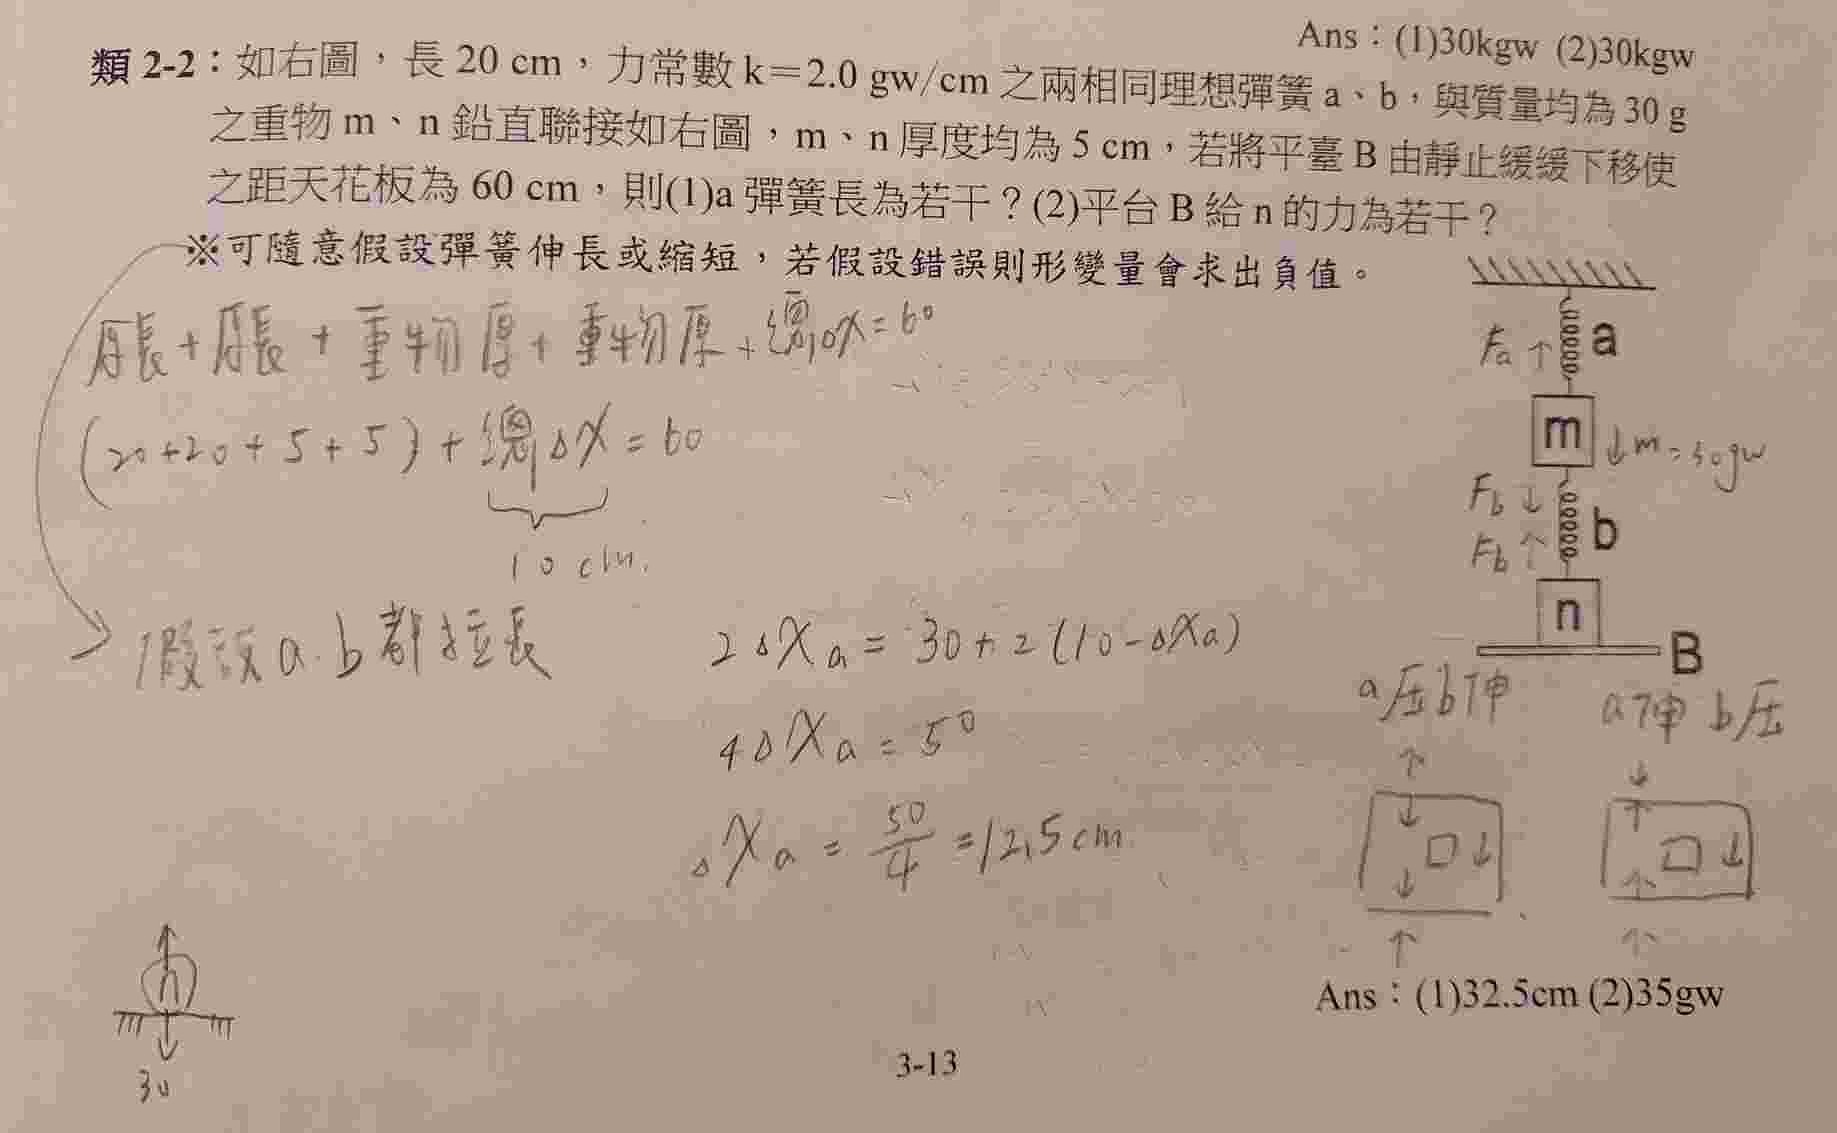 Ans：(1)30kgw (2)30kgw
類 2-2：如右圖，長 20 cm，力常數 k＝2.0 gw/cm 之兩相同理想彈簧 a、b，與質量均為 30 g
之重物 m、n 鉛直聯接如右圖，m、n 厚度均為 5 cm，若將平臺 B 由靜止緩緩下移使
之距天花板為 60 cm，則(1)a 彈簧長為若干？(2)平台 B 給 n 的力為若干？
※可隨意假設彈簧伸長或縮短，若假設錯誤則形變量會求出負值。
原長+原長+重物厚+重物厚+總Δx=60
(20+20+5+5)+總Δx=60
10 cm.
假設 a.b 都拉長
2ΔXa = 30+2(10-ΔXa)
4ΔXa = 50
ΔXa = 50/4 = 12.5 cm
Fa ↑ a
m ↓ m=30gw
Fb ↓
Fb ↑ b
n
B
a壓b伸
a伸b壓
n
30
Ans：(1)32.5cm (2)35gw
3-13